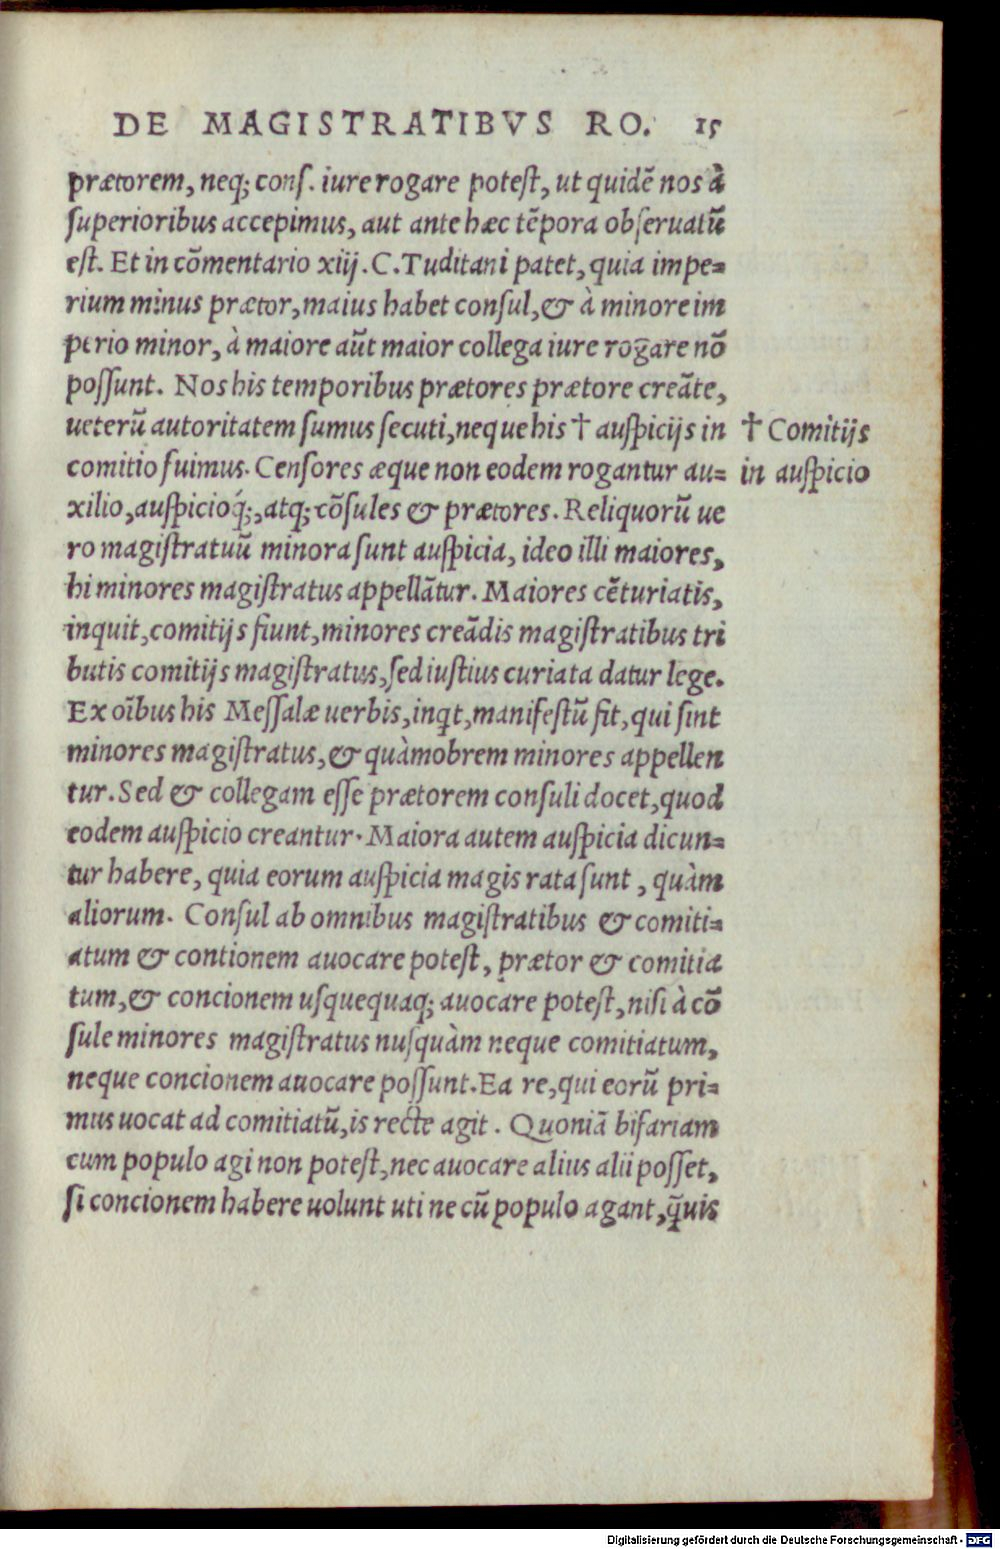 DE MAGISTRATIBVS RO. 15
prætorem, neq; cons. iure rogare potest, ut quidē nos à
superioribus accepimus, aut ante hæc tēpora obseruatū
est. Et in cōmentario xiij. C. Tuditani patet, quia impe=
rium minus prætor, maius habet consul, & à minore im
perio minor, à maiore aūt maior collega iure rogare nō
possunt. Nos his temporibus prætores prætore creāte,
ueterū autoritatem sumus secuti, neque his † auspicijs in
† Comitijs
comitio fuimus. Censores æque non eodem rogantur au=
in auspicio
xilio, auspicioq́;, atq; cōsules & prætores. Reliquorū ue
ro magistratuū minora sunt auspicia, ideo illi maiores,
hi minores magistratus appellātur. Maiores cēturiatis,
inquit, comitijs fiunt, minores creādis magistratibus tri
butis comitijs magistratus, sed iustius curiata datur lege.
Ex oībus his Messalæ uerbis, inqt, manifestū fit, qui sint
minores magistratus, & quàmobrem minores appellen
tur. Sed & collegam esse prætorem consuli docet, quod
eodem auspicio creantur. Maiora autem auspicia dicun=
tur habere, quia eorum auspicia magis rata sunt, quàm
aliorum. Consul ab omnibus magistratibus & comiti=
atum & contionem auocare potest, prætor & comitia
tum, & concionem usquequaq; auocare potest, nisi à cō
sule minores magistratus nusquàm neque comitiatum,
neque concionem auocare possunt. Ea re, qui eorū pri=
mus uocat ad comitiatū, is recte agit. Quoniā bifariam
cum populo agi non potest, nec auocare alius alii posset,
si concionem habere uolunt uti ne cū populo agant, q̄uis
Digitalisierung gefördert durch die Deutsche Forschungsgemeinschaft - DFG